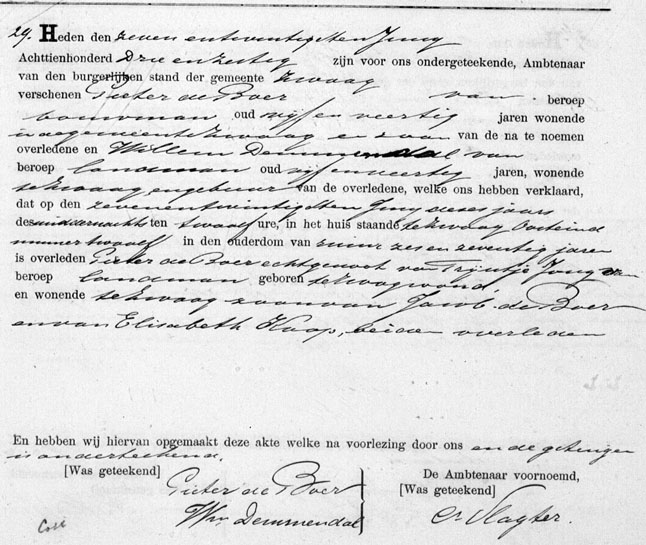 29. Heden den zeven entwintigsten Juny
Achttienhonderd Drie en zestig zijn voor ons ondergeteekende, Ambtenaar
van den burgerlijken stand der gemeente Zwaag
verschenen Pieter de Boer van beroep
bouwman oud vijf en veertig jaren wonende
in de gemeente Zwaag en zoon van de na te noemen
overledene en Willem Demmendal van
beroep landman oud vijfenveertig jaren, wonende
te Zwaag, en gebuur van de overledene, welke ons hebben verklaard,
dat op den zevenentwintigsten Juny dezes jaars
des middernachts ten twaalf ure, in het huis staande te Zwaag Oosteind
nummer twaalf in den ouderdom van ruim zes en zeventig jaren
is overleden Pieter de Boer echtgenoot van Trijntje Jong van
beroep landman geboren te Zwaag
en wonende te Zwaag zoon van Jacob de Boer
en van Elisabeth Koop, beiden overleden
En hebben wij hiervan opgemaakt deze akte welke na voorlezing door ons en de getuigen
is onderteekend.
[Was geteekend]
Pieter de Boer
Wm Demmendal
De Ambtenaar voornoemd,
[Was geteekend]
Cr Slagter.